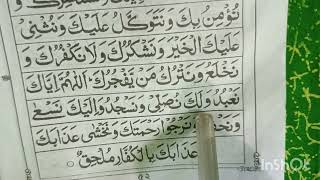 نُؤْمِنُ بِكَ وَنَتَوَكَّلُ عَلَيْكَ وَنُثْنِیْ
عَلَيْكَ الْخَيْرَ وَنَشْكُرُكَ وَلَا نَكْفُرُكَ وَ
نَخْلَعُ وَنَتْرُكُ مَنْ يَّفْجُرُكَ اَللّٰهُمَّ اِيَّاكَ
نَعْبُدُ وَلَكَ نُصَلِّیْ وَنَسْجُدُ وَاِلَيْكَ نَسْعٰی
وَنَرْجُوْا رَحْمَتَكَ وَنَخْشٰی عَذَابَكَ
عَذَابَكَ بِالْكُفَّارِ مُلْحِقٌ
InShot